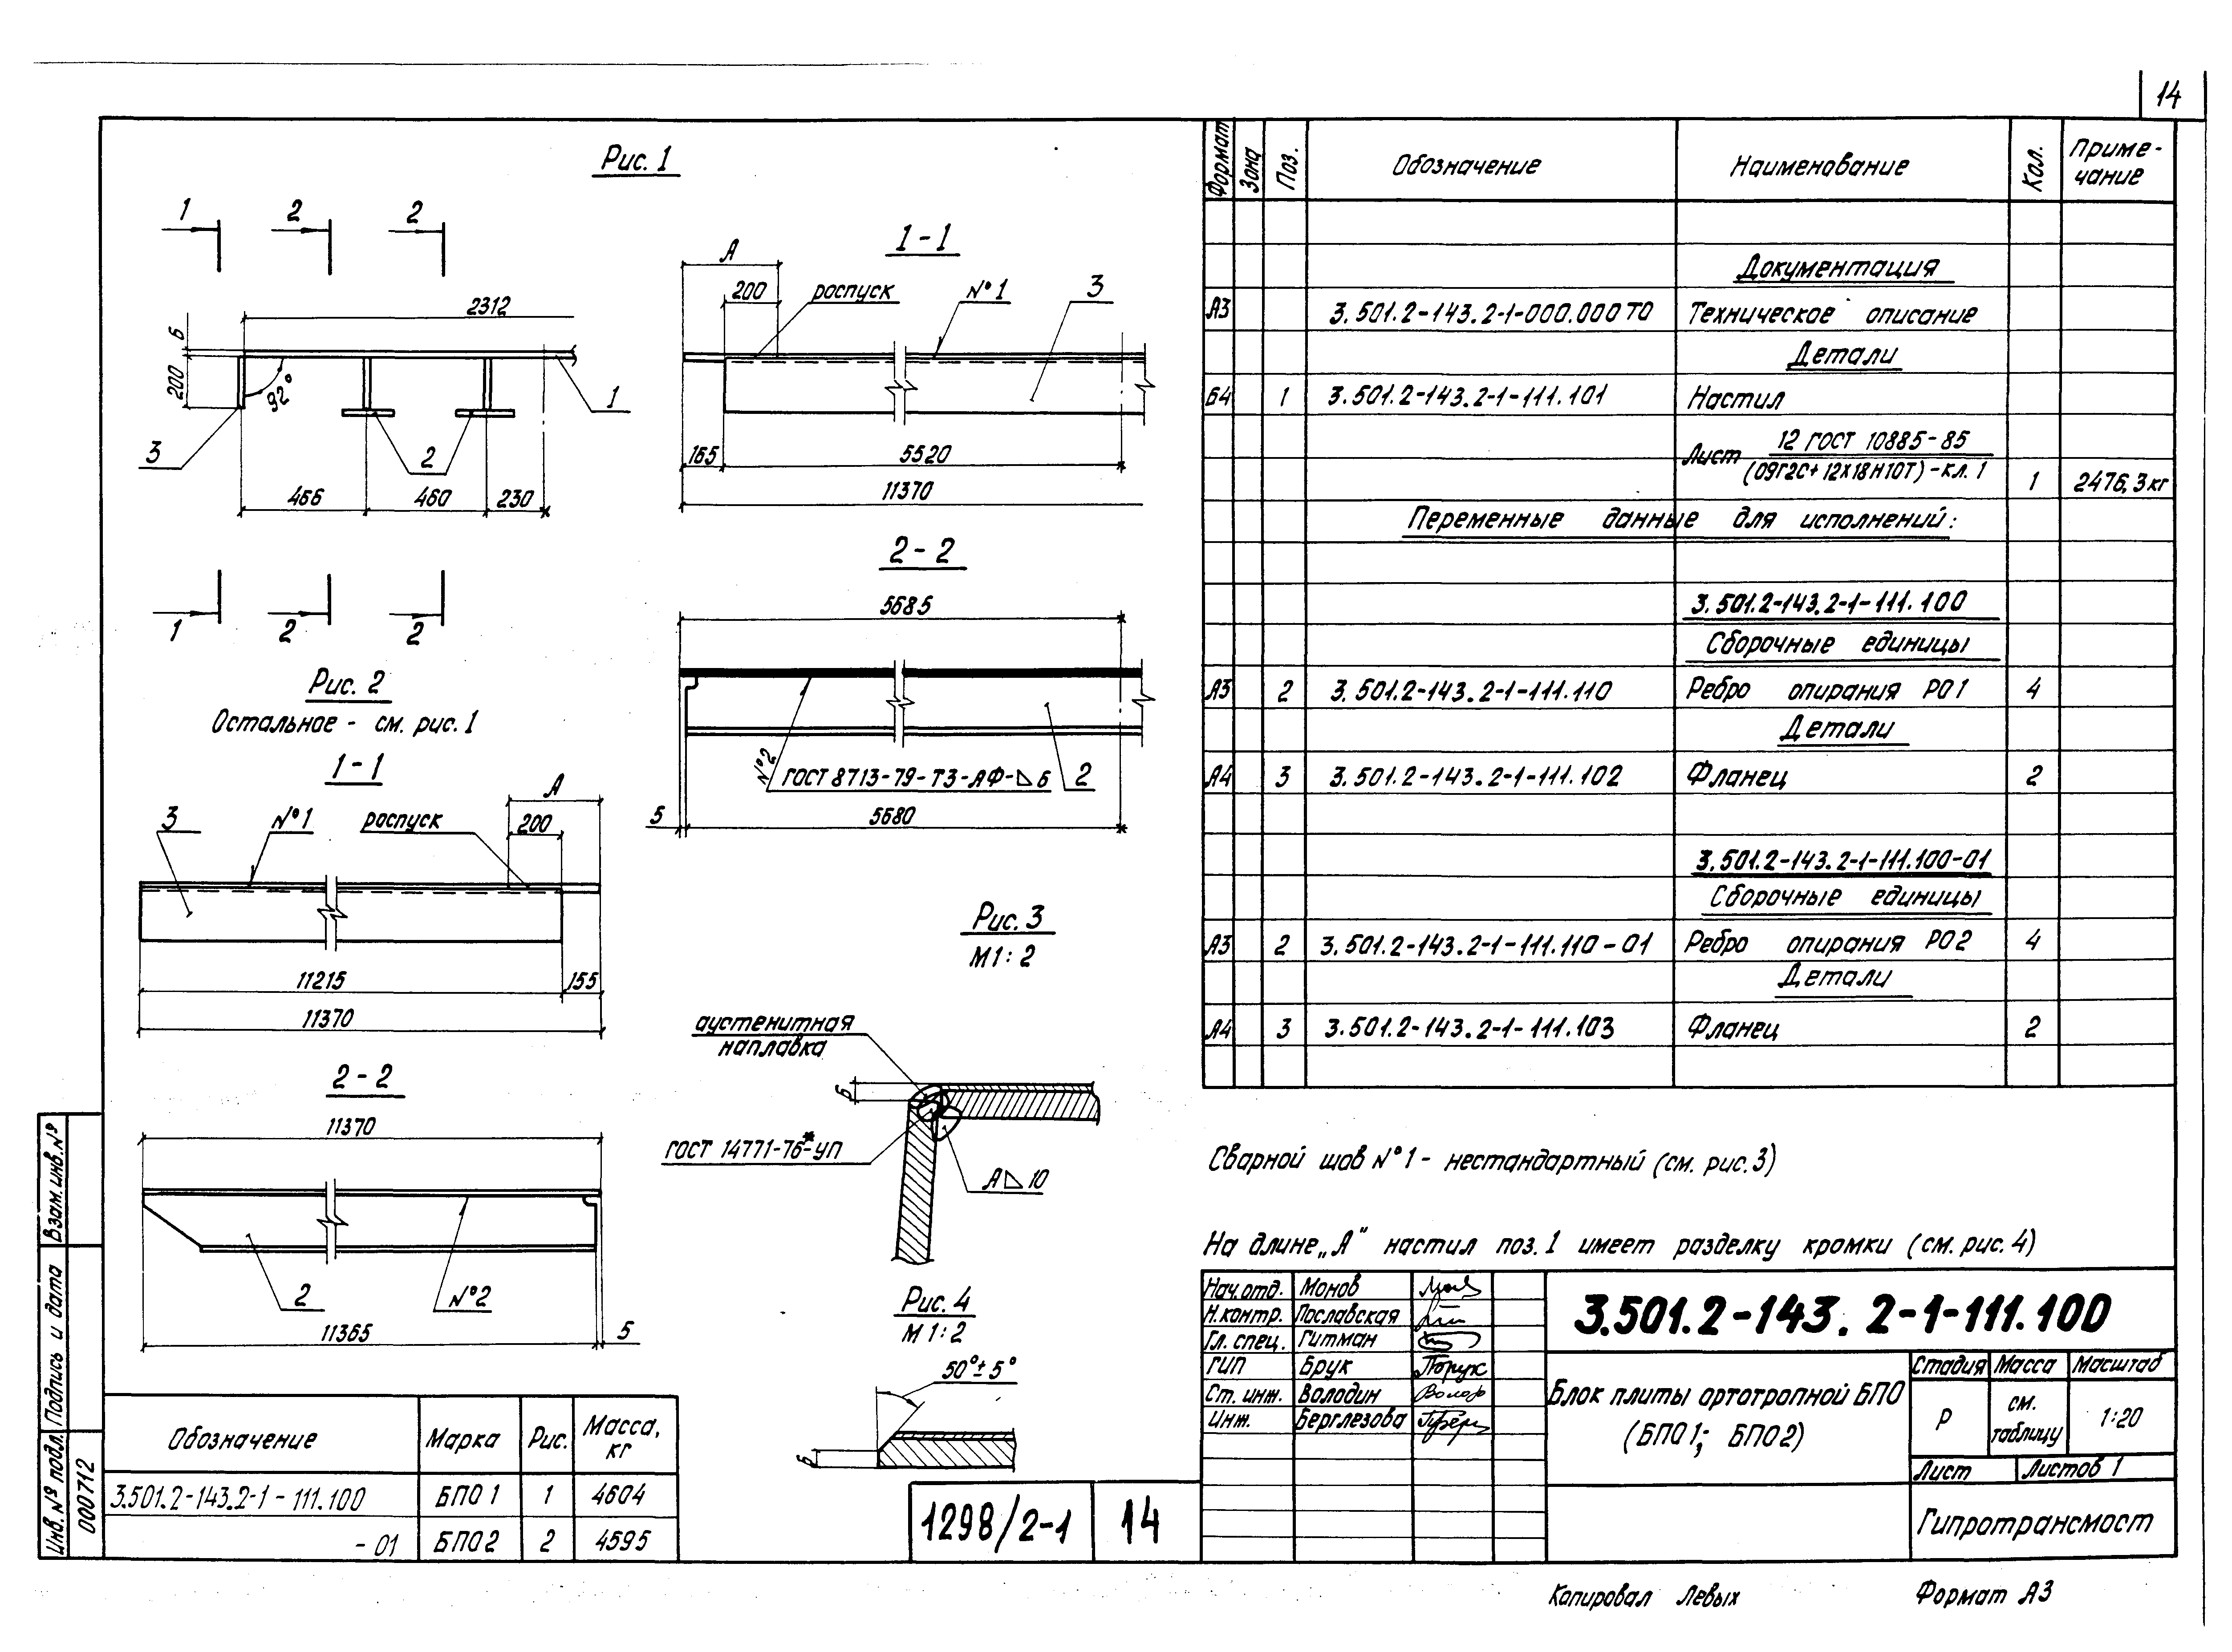 14
Рис. 1
1 2 2
2312
6
200
92°
1
3
2
466 460 230
1 2 2
1-1
А
200
роспуск
№1
3
165
5520
11370
2-2
5685
№2
ГОСТ 8713-79-Т3-АФ-⊿6
2
5
5680
Рис. 2
Остальное - см. рис. 1
1-1
А
3
№1
роспуск
200
11215
155
11370
2-2
11370
2
№2
11365
5
Рис. 3
М1:2
аустенитная
наплавка
6
ГОСТ 14771-76*-УП
А⊿10
Рис. 4
М 1:2
50°±5°
6
Формат Зона Поз. Обозначение Наименование Кол. Приме-
чание
Документация
А3 3.501.2-143.2-1-000.000ТО Техническое описание
Детали
Б4 1 3.501.2-143.2-1-111.101 Настил
Лист 12 ГОСТ 10885-85
(09Г2С+12Х18Н10Т)-кл.1 1 2476,3кг
Переменные данные для исполнений:
3.501.2-143.2-1-111.100
Сборочные единицы
А3 2 3.501.2-143.2-1-111.110 Ребро опирания РО1 4
Детали
А4 3 3.501.2-143.2-1-111.102 Фланец 2
3.501.2-143.2-1-111.100-01
Сборочные единицы
А3 2 3.501.2-143.2-1-111.110-01 Ребро опирания РО2 4
Детали
А4 3 3.501.2-143.2-1-111.103 Фланец 2
Сварной шов №1 - нестандартный (см. рис.3)
На длине „А" настил поз. 1 имеет разделку кромки (см. рис. 4)
Нач.отд. Монов
Н.контр. Пославская
Гл. спец. Гитман
ГИП Брук
Ст. инж. Володин
Инж. Берглезова
3.501.2-143.2-1-111.100
Блок плиты ортотропной БПО
(БПО1; БПО2)
Стадия Масса Масштаб
Р см.
таблицу 1:20
Лист Листов 1
Гипротрансмост
Обозначение Марка Рис. Масса,
кг
3.501.2-143.2-1-111.100 БПО1 1 4604
-01 БПО2 2 4595
1298/2-1 14
Взам.инв.№
Подпись и дата
Инв.№ подл.
000712
Копировал Левых Формат А3